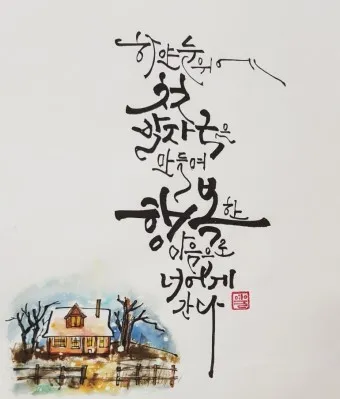 하얀눈위에
첫
발자국을
만들며
행복한
마음으로
너에게
간다